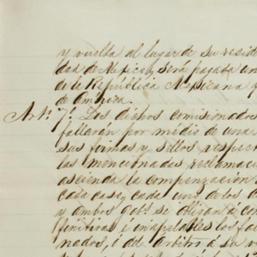 y vuelta al lugar de su resid
dad de Mexico, será pagada en
de la República Mexicana y
de America.
Art.º 7.º Los dichos comisionados
fallarán por medio de una
sus firmas y sellos respec
las mencionadas reclamac
ascienda la compensacion
cada caso, cada uno de los
y ambos gob.s se obligan á con
finitivas é inapelables los fa
nados, ó del árbitro á su